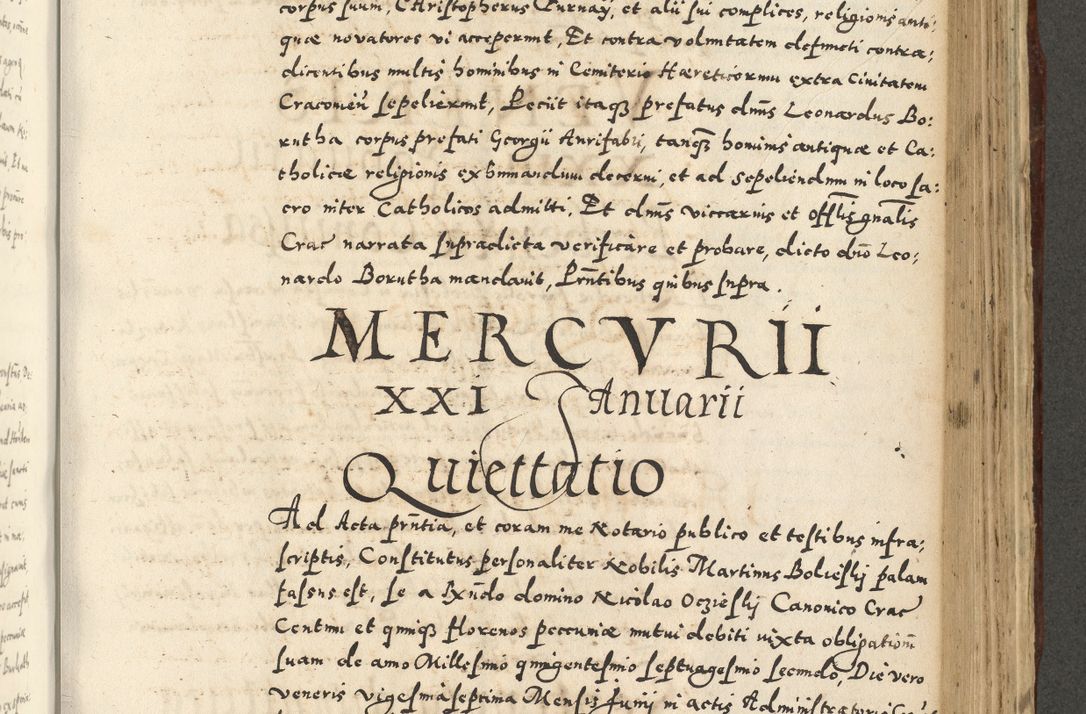 corpus suum, Christopherus Curnay, et alii sui complices, religionis anti:
quæ novatores vi acceperunt, Et contra voluntatem defuncti contra:
dicentibus multis hominibus in Cemiterio Hæreticorum extra Civitatem
Cracovieñ sepelierunt, Peciit itaqz prefatus dñs Leonardus Bo:
rutha corpus prefati Georgii Aurifabri, tanqz hominis antiquæ et Ca:
tholicæ religionis exhumandum decerni, et ad sepeliendum in loco sa:
cro inter Catholicos admitti, Et dñs viccarius et offlis gnalis
Crac narrata supradicta verificare et probare, dicto dño Leo:
nardo Borutha mandavit, Prñtibus quibus supra.
MERCVRII
XXI Ianuarii
Quiettatio
Ad Acta prñtia, et coram me Notario publico et testibus infra:
scriptis, Constitutus personaliter Nobilis Martinus Bolieslij palam
fassus est, se a Rxñdo domino Nicolao Oczieslij Canonico Crac
Centum et quinqz florenos peccuniæ mutui debiti iuxta obligationẽ
suam de anno Millesimo quingentesimo septuagesimo secundo, Die vero
veneris vigesima septima Mensis Junii in actis Administratoria